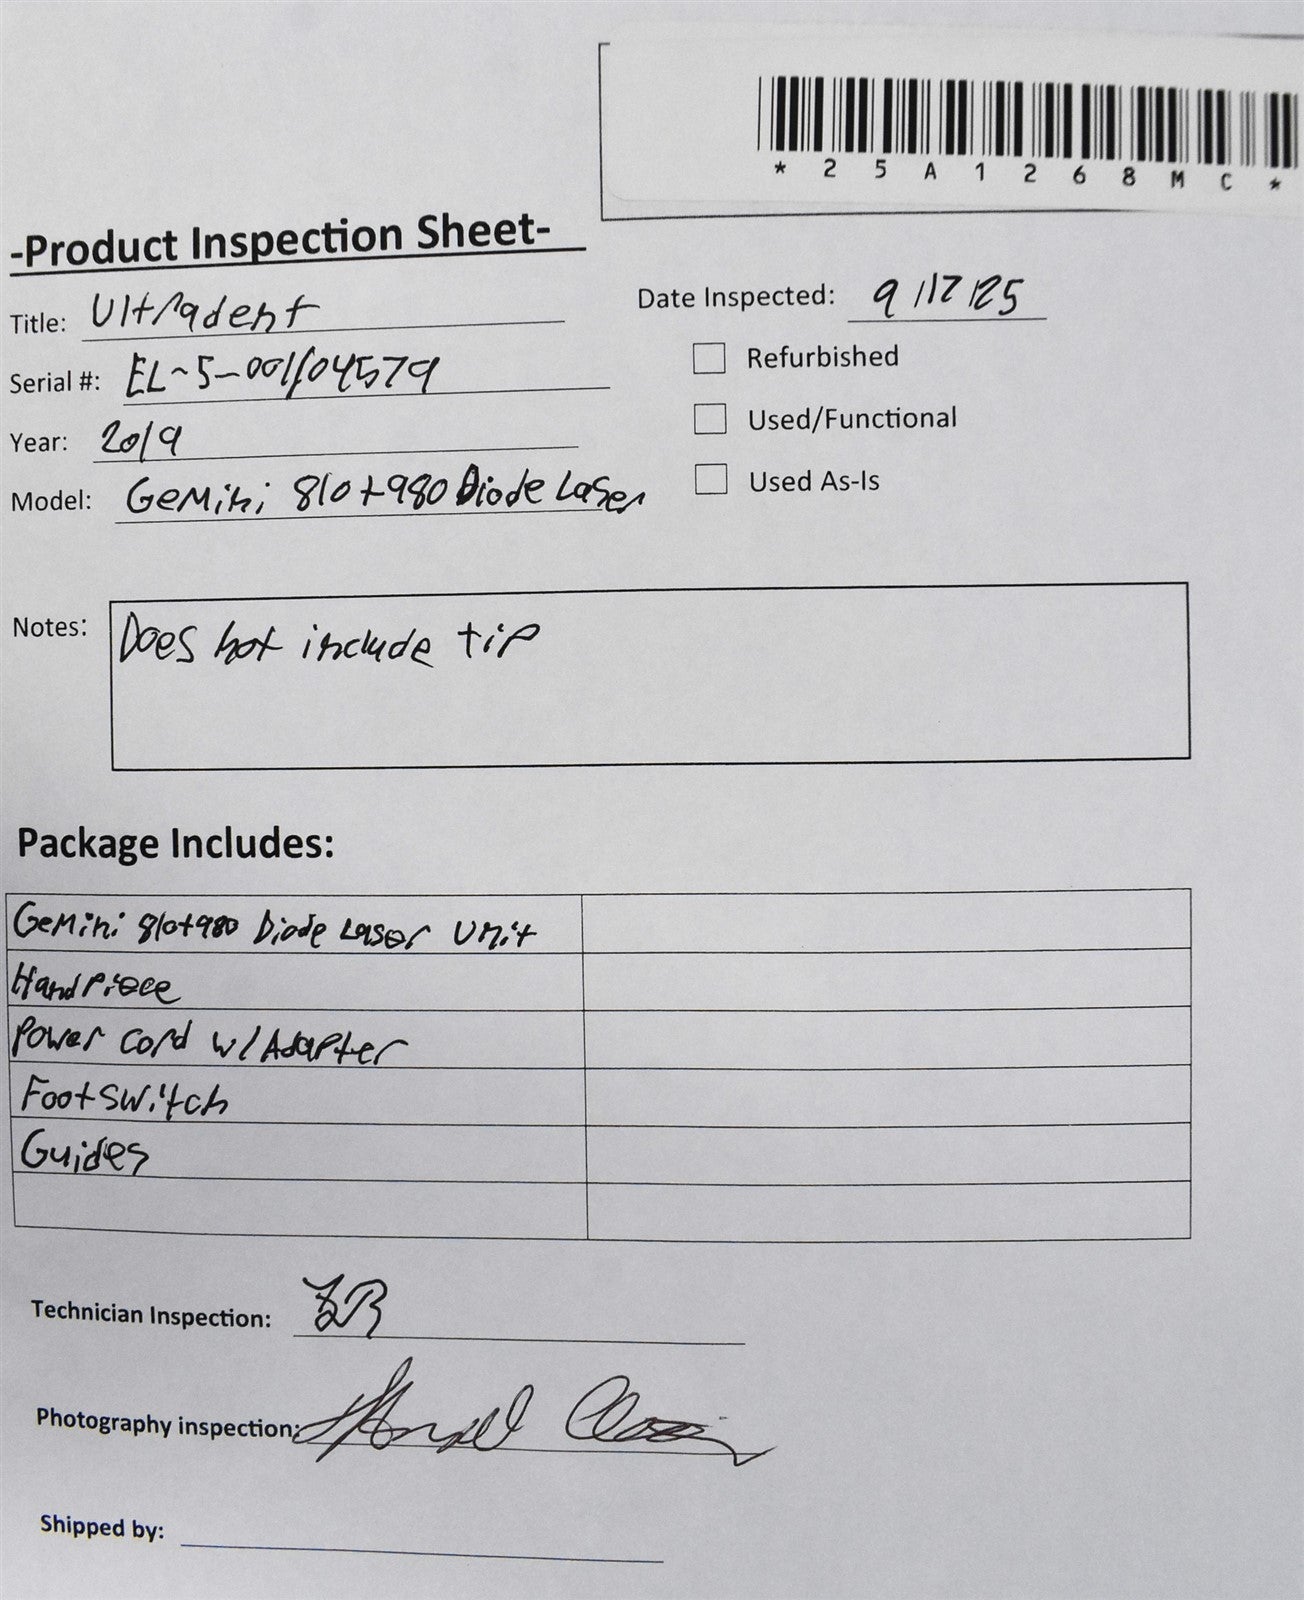 * 2 5 A 1 2 6 8 M C *
-Product Inspection Sheet-
Title: Ultradent
Date Inspected: 9/17/25
Serial #: EL-5-001/04579
Refurbished
Year: 2019
Used/Functional
Model: Gemini 810+980 Diode Laser
Used As-Is
Notes: Does not include tip
Package Includes:
Gemini 810+980 Diode Laser Unit
Handpiece
Power cord w/Adapter
Footswitch
Guides
Technician Inspection:
Photography inspection:
Shipped by: